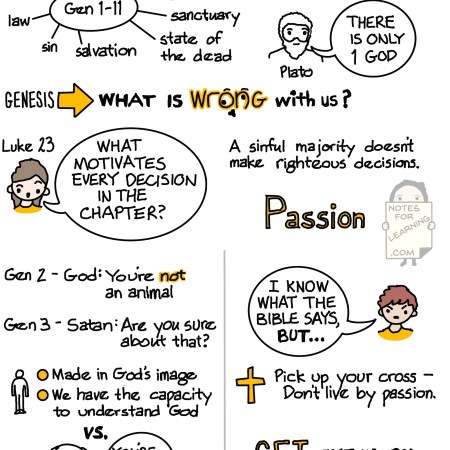 law
Gen 1-11
sanctuary
sin
salvation
state of
the dead
THERE
IS ONLY
1 GOD
Plato
GENESIS WHAT IS WRONG with us?
Luke 23
WHAT
MOTIVATES
EVERY DECISION
IN THE
CHAPTER?
A sinful majority doesn't
make righteous decisions.
Passion
NOTES
FOR
LEARNING
.COM
Gen 2 - God: You're not
an animal
Gen 3 - Satan: Are you sure
about that?
Made in God's image
We have the capacity
to understand God
vs.
YOU'RE
I KNOW
WHAT THE
BIBLE SAYS,
BUT...
Pick up your cross -
Don't live by passion.
GET